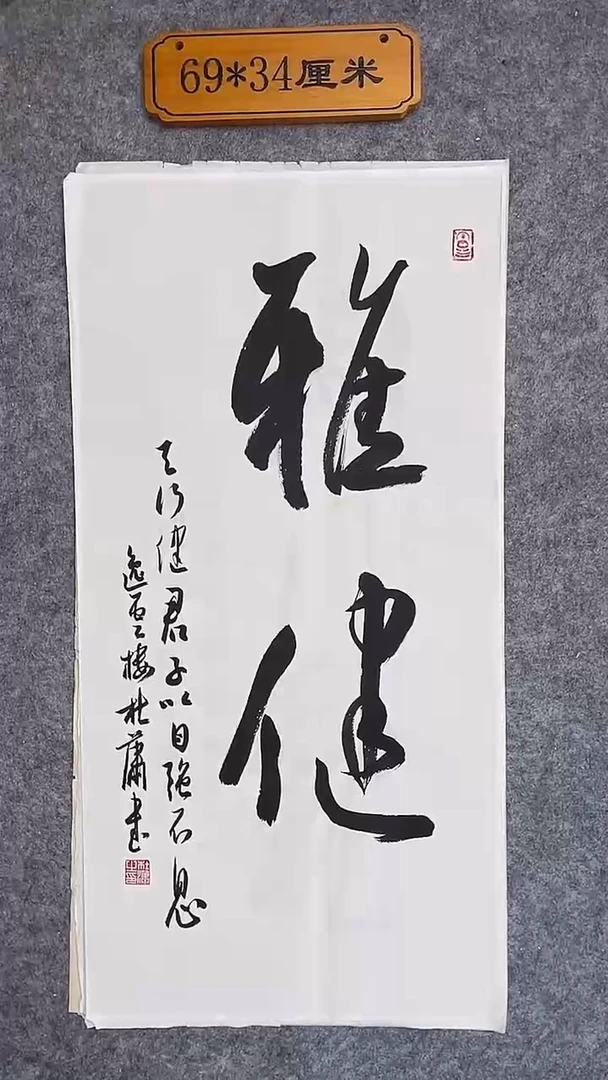 69*34厘米
雅健
天行健君子以自强不息
逸云楼杜萧书